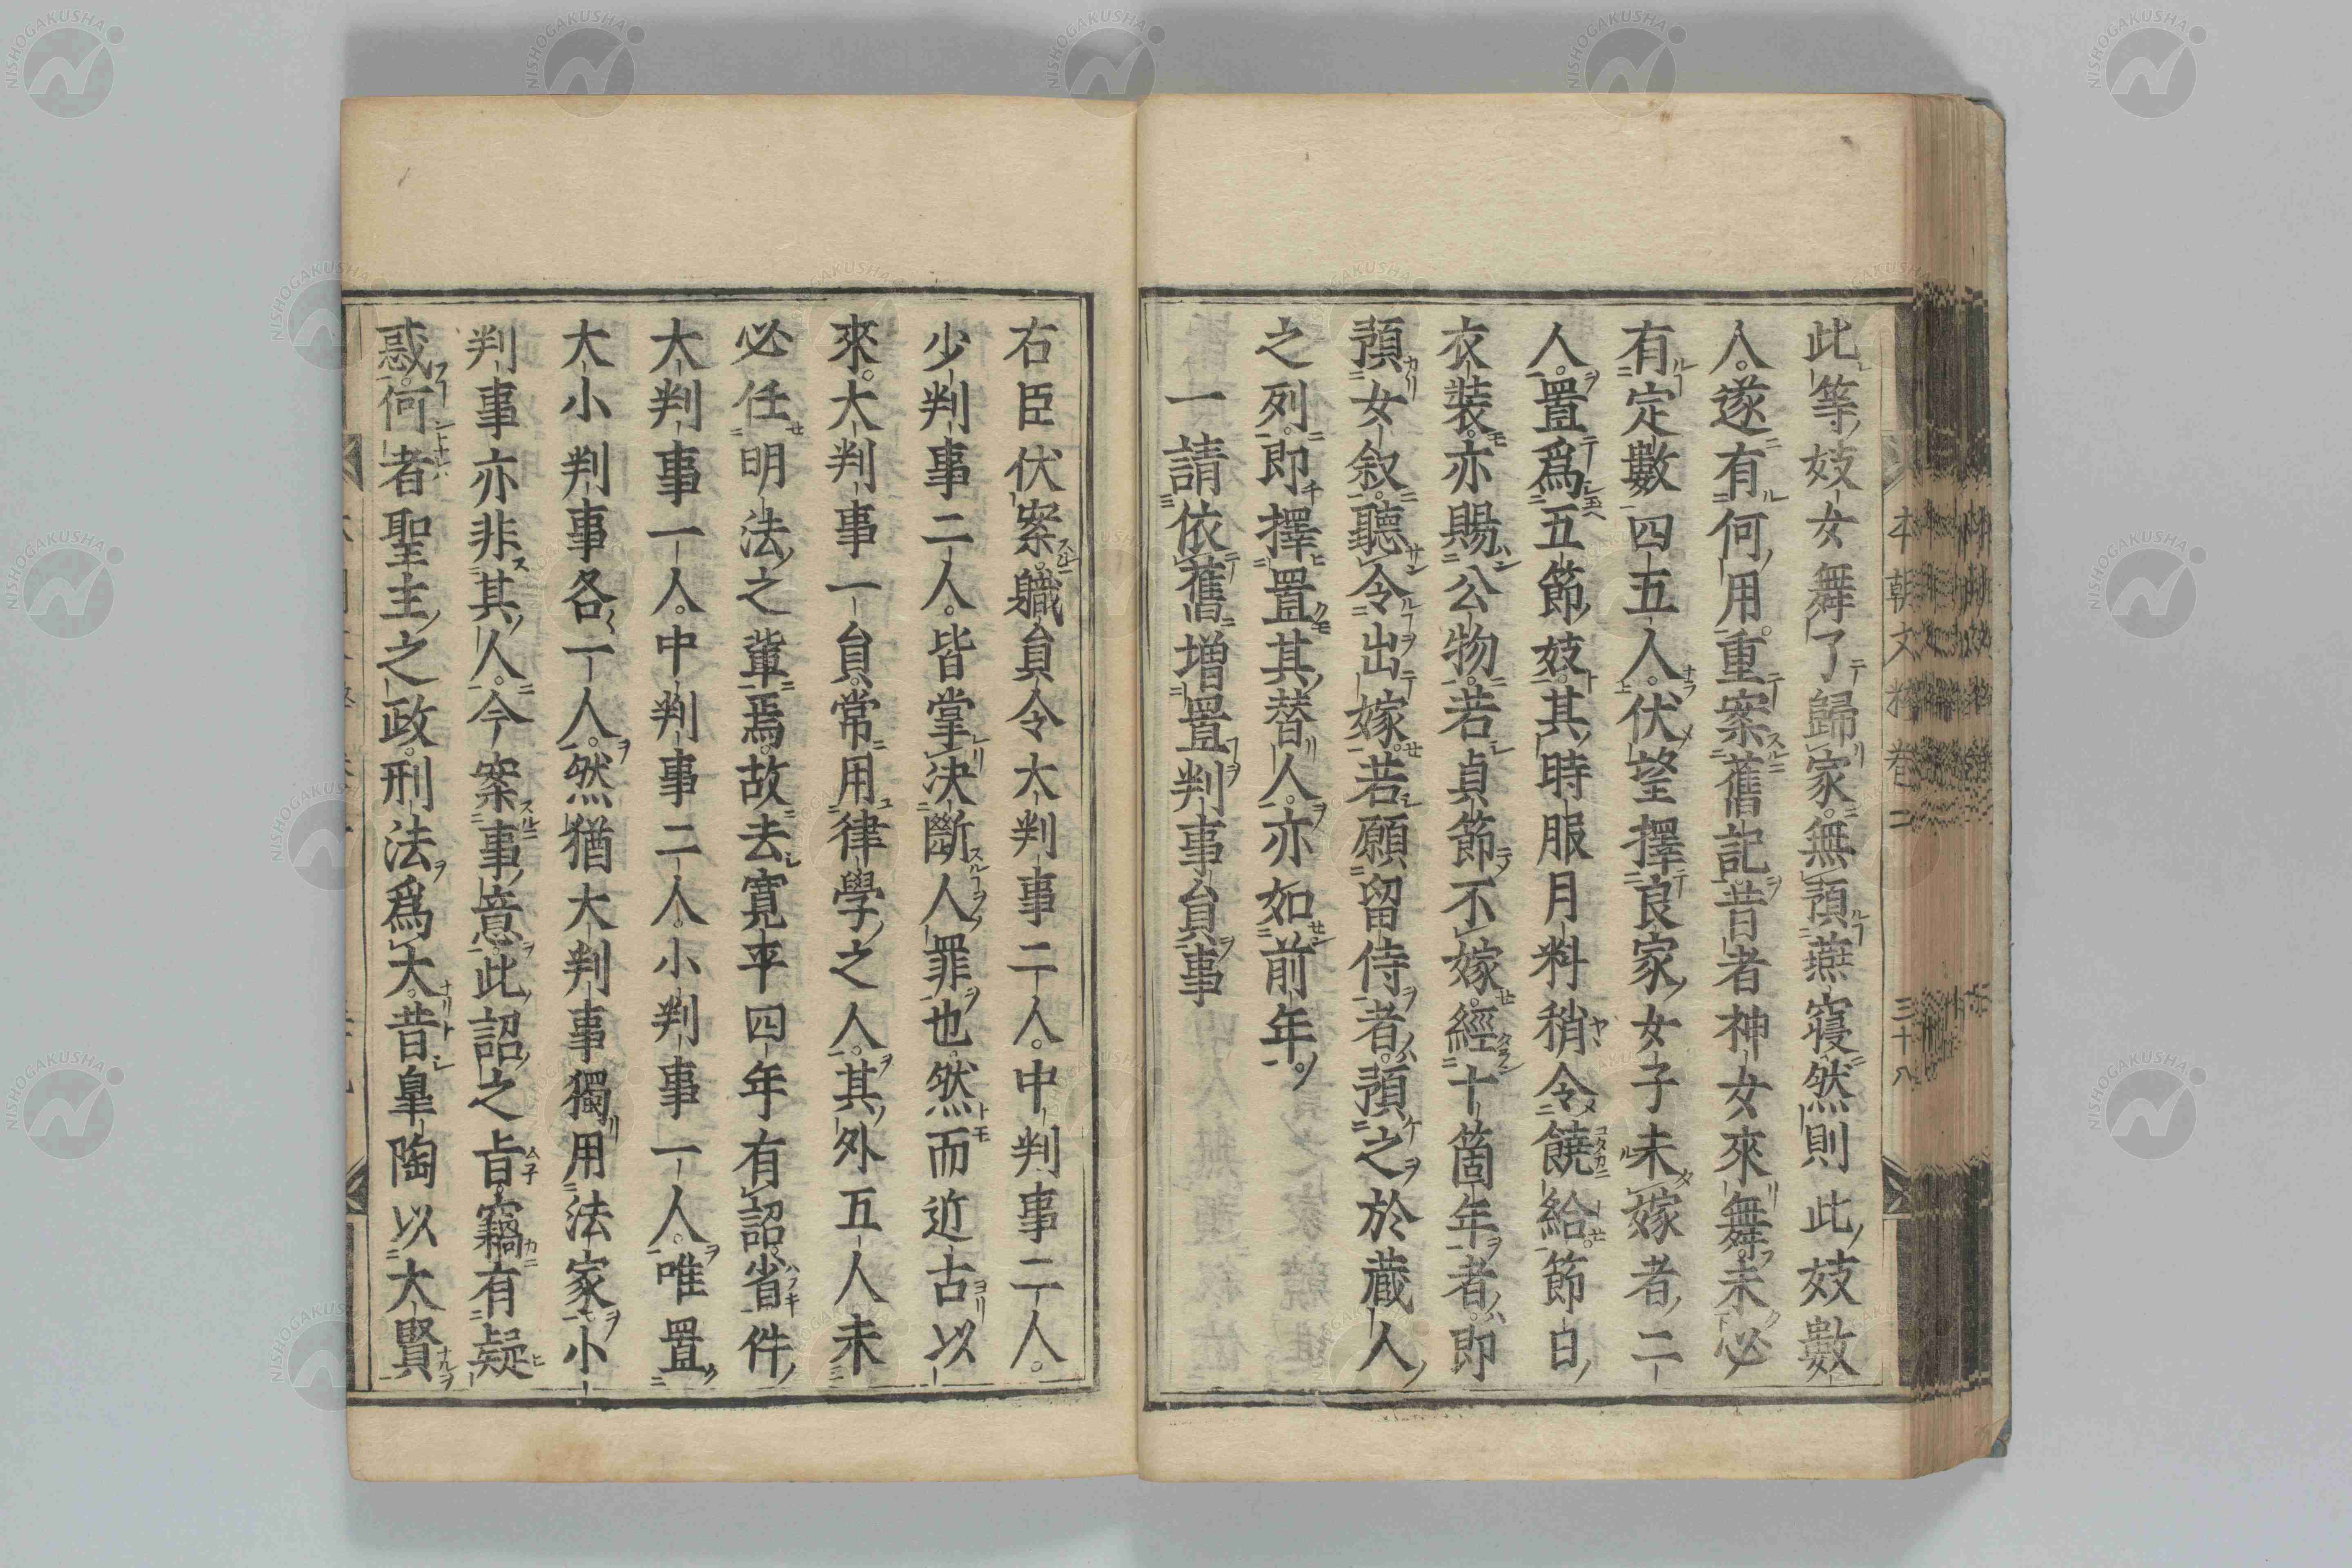 此等妓女舞了歸家無預燕寢然則此妓數
人遂有何用重案舊記昔者神女來舞未必
有定數四五人伏望擇良家女子未嫁者二
人置爲五節妓其時服月料稍令饒給節日
衣裝亦賜公物若貞節不嫁經十箇年者即
預女叙聽令出嫁若願留侍者預之於藏人
之列即擇置其替人亦如前年
一請依舊増置判事員事
右臣伏案職員令大判事二人中判事二人
少判事二人皆掌決斷人罪也然而近古以
來大判事一員常用律學之人其外五人未
必任明法之輩焉故去寛平四年有詔省件
大判事一人中判事二人小判事一人唯置
大小判事各一人然猶大判事獨用法家小
判事亦非其人今案事意此詔之旨竊有疑
惑何者聖主之政刑法爲大昔皐陶以大賢
本朝文粹卷二 三十八